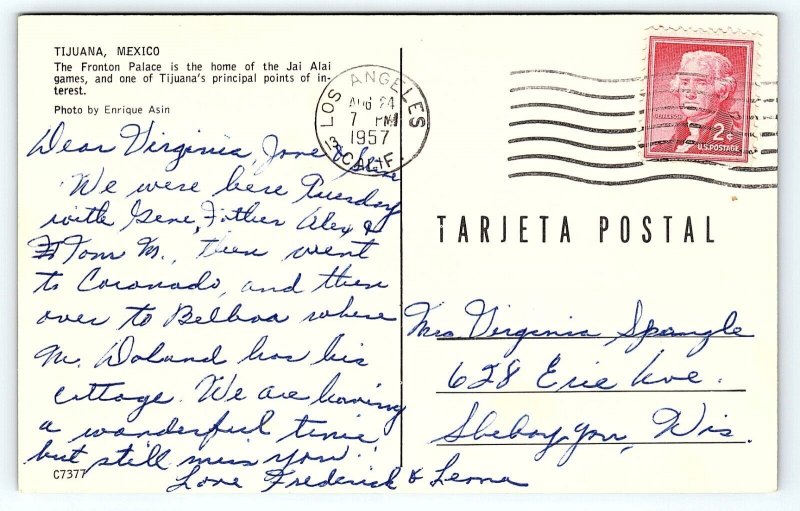 TIJUANA, MEXICO
The Fronton Palace is the home of the Jai Alai
games, and one of Tijuana's principal points of in-
terest.
Photo by Enrique Asin
LOS ANGELES
AUG 24
7 PM
1957
CALIF.
JEFFERSON
2¢
U.S. POSTAGE
Dear Virginia, Jane &
We were here Tuesday
with Gene, Father Alex &
Tom M., then went
to Coronado, and then
over to Belboa where
M. Doland has his
cottage. We are having
a wonderful time
but still miss you.
Love Frederick & Leona
C7377
TARJETA POSTAL
Mrs Virginia Spangle
628 Erie Ave.
Sheboygan, Wis.